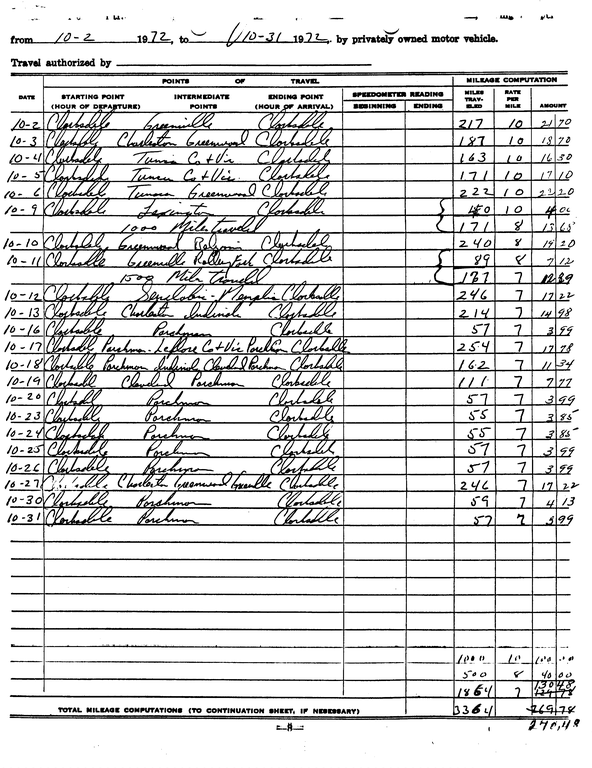 from 10-2 1972, to 10-31 1972, by privately owned motor vehicle.
Travel authorized by
POINTS OF TRAVEL MILEAGE COMPUTATION
DATE STARTING POINT (HOUR OF DEPARTURE) INTERMEDIATE POINTS ENDING POINT (HOUR OF ARRIVAL) SPEEDOMETER READING BEGINNING ENDING MILES TRAVELED RATE PER MILE AMOUNT
10-2 Clarksdale Greenville Clarksdale 217 10 21 70
10-3 Clarksdale Charleston Greenwood Clarksdale 187 10 18 70
10-4 Clarksdale Tunica Co & Vic Clarksdale 163 10 16 30
10-5 Clarksdale Tunica Co & Vic. Clarksdale 171 10 17 10
10-6 Clarksdale Tunica Greenwood Clarksdale 222 10 22 20
10-9 Clarksdale Lexington Clarksdale 40 10 4 00
1000 Miles traveled 171 8 13 68
10-10 Clarksdale Greenwood Clarksdale 240 8 19 20
10-11 Clarksdale Greenville Rolling Fork Clarksdale 89 8 7 12
1500 Miles traveled 7
10-12 Clarksdale Senatobia - Memphis Clarksdale 246 7 17 22
10-13 Clarksdale Charleston Indianola Clarksdale 214 7 14 98
10-16 Clarksdale Parchman Clarksdale 57 7 3 99
10-17 Clarksdale Parchman - Leflore Co & Vic Parchman Clarksdale 254 7 17 78
10-18 Clarksdale Parchman Indianola Cleveland Parchman Clarksdale 162 7 11 34
10-19 Clarksdale Cleveland Parchman Clarksdale 111 7 7 77
10-20 Clarksdale Parchman Clarksdale 57 7 3 99
10-23 Clarksdale Parchman Clarksdale 55 7 3 85
10-24 Clarksdale Parchman Clarksdale 55 7 3 85
10-25 Clarksdale Parchman Clarksdale 57 7 3 99
10-26 Clarksdale Parchman Clarksdale 57 7 3 99
10-27 Clarksdale Charleston Greenwood Greenville Clarksdale 246 7 17 22
10-30 Clarksdale Parchman Clarksdale 59 7 4 13
10-31 Clarksdale Parchman Clarksdale 57 7 3 99
1000 10 100 00
500 8 40 00
130 48
1864 7
TOTAL MILEAGE COMPUTATIONS (TO CONTINUATION SHEET, IF NECESSARY) 3364 269 78
270,48